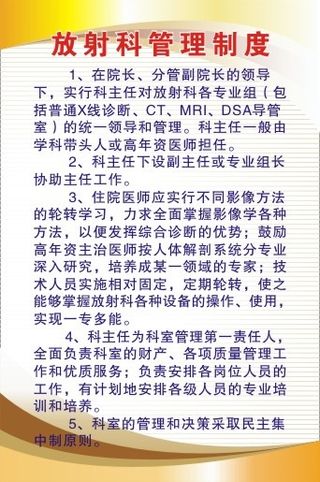 放射科管理制度
1、在院长、分管副院长的领导
下，实行科主任对放射科各专业组（包
括普通X线诊断、CT、MRI、DSA导管
室）的统一领导和管理。科主任一般由
学科带头人或高年资医师担任。
2、科主任下设副主任或专业组长
协助主任工作。
3、住院医师应实行不同影像方法
的轮转学习，力求全面掌握影像学各种
方法，以便发挥综合诊断的优势；鼓励
高年资主治医师按人体解剖系统分专业
深入研究，培养成某一领域的专家；技
术人员实施相对固定，定期轮转，使之
能够掌握放射科各种设备的操作、使用，
实现一专多能。
4、科主任为科室管理第一责任人，
全面负责科室的财产、各项质量管理工
作和优质服务；负责安排各岗位人员的
工作，有计划地安排各级人员的专业培
训和培养。
5、科室的管理和决策采取民主集
中制原则。